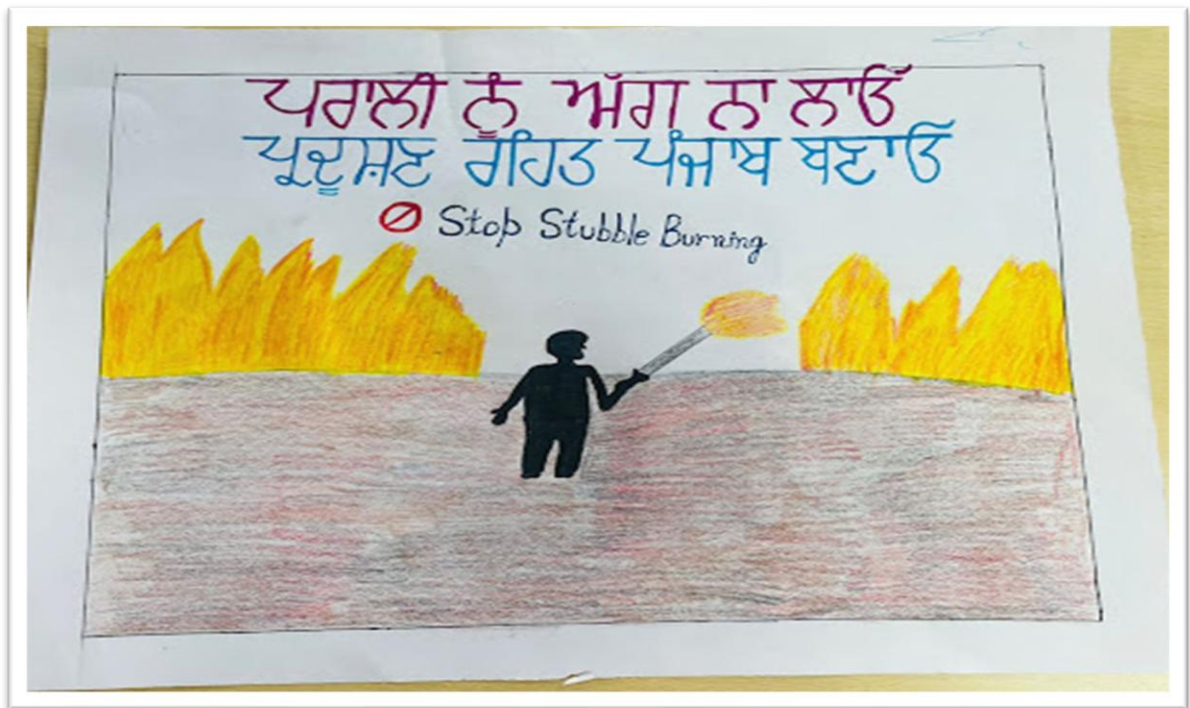 ਪਰਾਲੀ ਨੂੰ ਅੱਗ ਨਾ ਲਾਓ
ਪ੍ਰਦੂਸ਼ਣ ਰਹਿਤ ਪੰਜਾਬ ਬਣਾਓ
Stop Stubble Burning